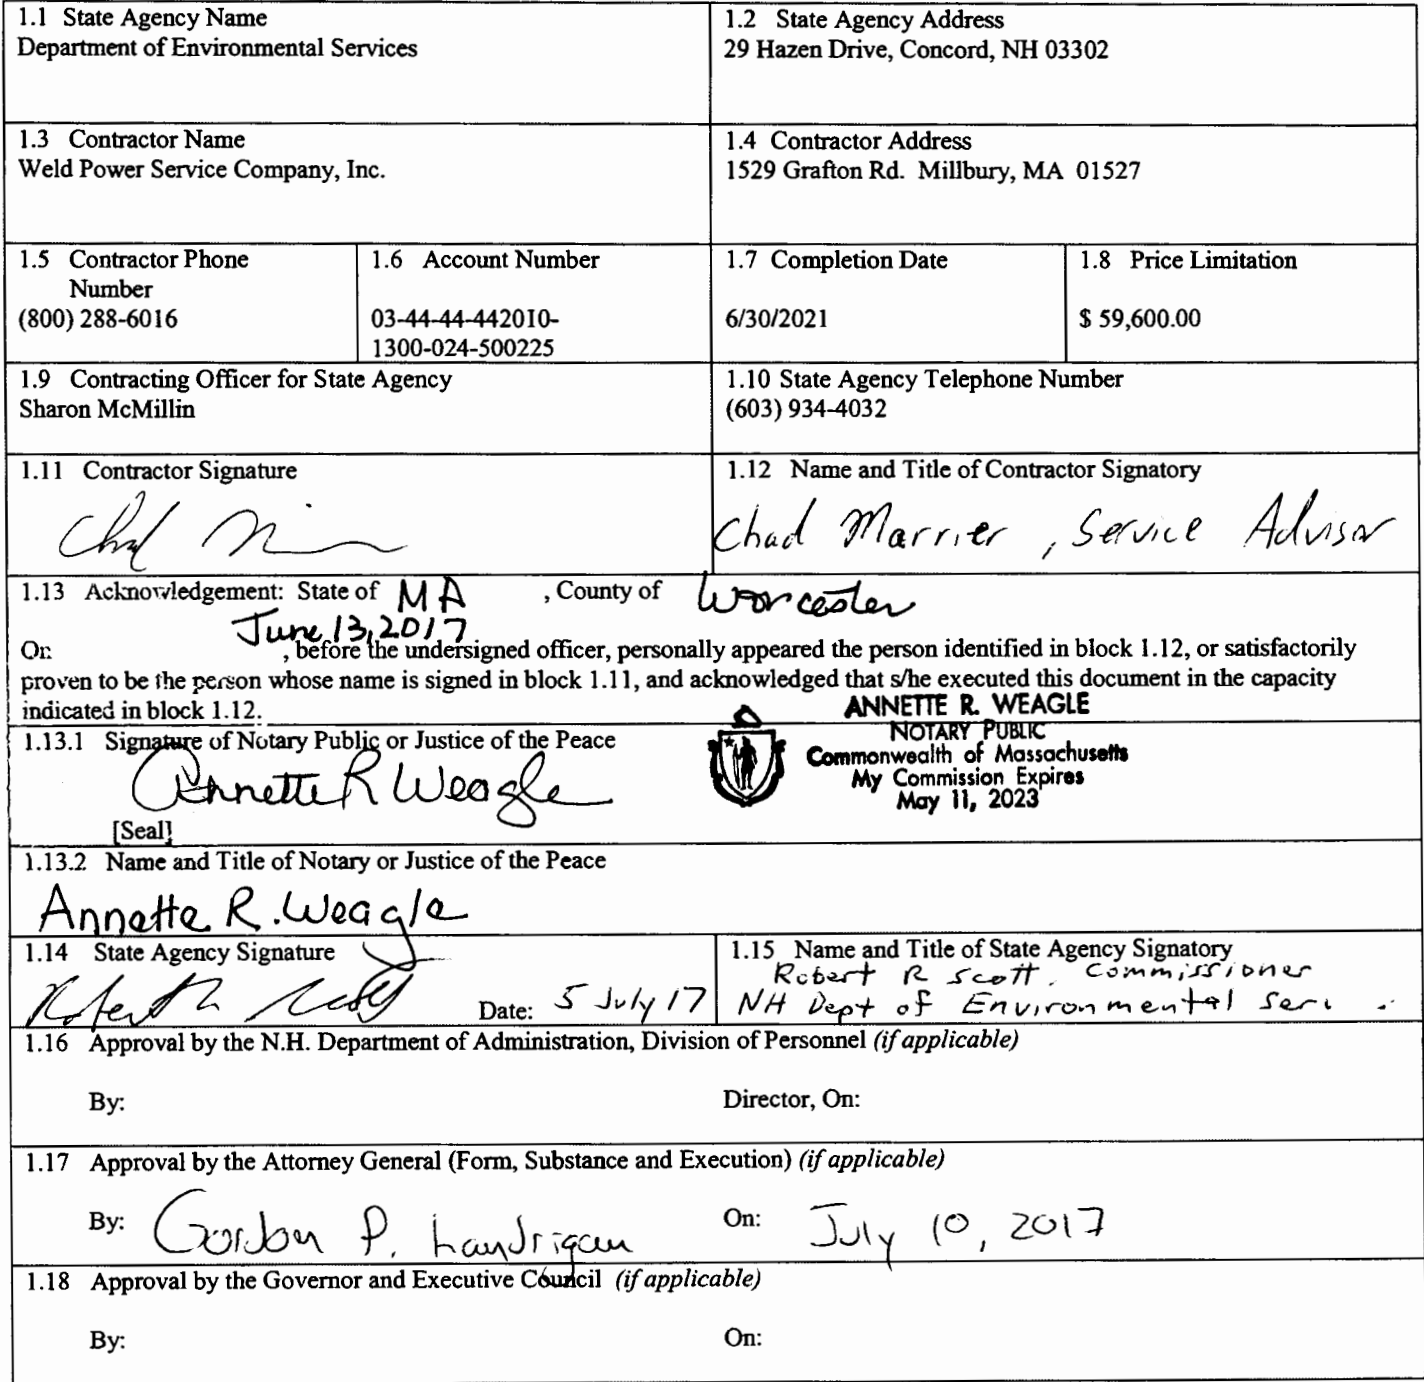 1.1 State Agency Name
Department of Environmental Services
1.2 State Agency Address
29 Hazen Drive, Concord, NH 03302
1.3 Contractor Name
Weld Power Service Company, Inc.
1.4 Contractor Address
1529 Grafton Rd. Millbury, MA 01527
1.5 Contractor Phone
Number
(800) 288-6016
1.6 Account Number
03-44-44-442010-
1300-024-500225
1.7 Completion Date
6/30/2021
1.8 Price Limitation
$ 59,600.00
1.9 Contracting Officer for State Agency
Sharon McMillin
1.10 State Agency Telephone Number
(603) 934-4032
1.11 Contractor Signature
Chad
1.12 Name and Title of Contractor Signatory
Chad Marrier, Service Advisor
1.13 Acknowledgement: State of MA , County of Worcester
June 13, 2017
On , before the undersigned officer, personally appeared the person identified in block 1.12, or satisfactorily
proven to be the person whose name is signed in block 1.11, and acknowledged that s/he executed this document in the capacity
indicated in block 1.12.
ANNETTE R. WEAGLE
NOTARY PUBLIC
Commonwealth of Massachusetts
My Commission Expires
May 11, 2023
1.13.1 Signature of Notary Public or Justice of the Peace
Annette R Weagle
[Seal]
1.13.2 Name and Title of Notary or Justice of the Peace
Annette R. Weagle
1.14 State Agency Signature
Robert R Scott
Date: 5 July 17
1.15 Name and Title of State Agency Signatory
Robert R Scott, Commissioner
NH Dept of Environmental Serv
1.16 Approval by the N.H. Department of Administration, Division of Personnel (if applicable)
By: Director, On:
1.17 Approval by the Attorney General (Form, Substance and Execution) (if applicable)
By: Gordon P. Landrigan On: July 10, 2017
1.18 Approval by the Governor and Executive Council (if applicable)
By: On: